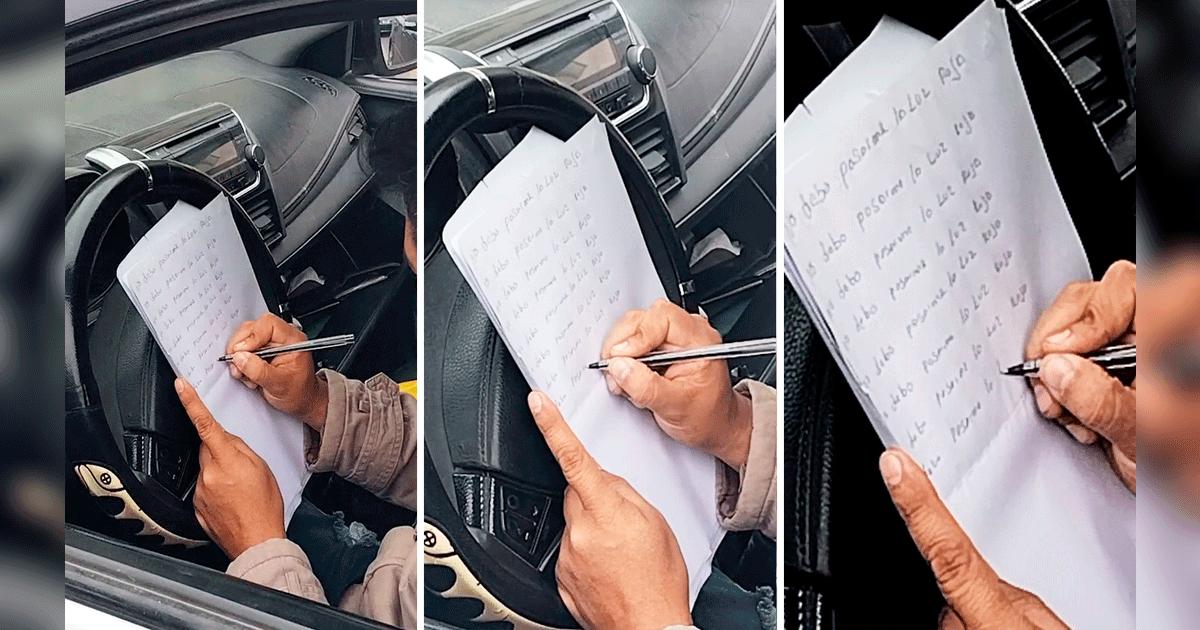 no debo pasarme la Luz Roja
no debo pasarme la Luz Roja
no debo pasarme la Luz Roja
no debo pasarme la Luz Roja
no debo pasarme la Luz Roja
no debo pasarme la Luz Roja
no debo pasarme la Luz Roja
debo pasarme la